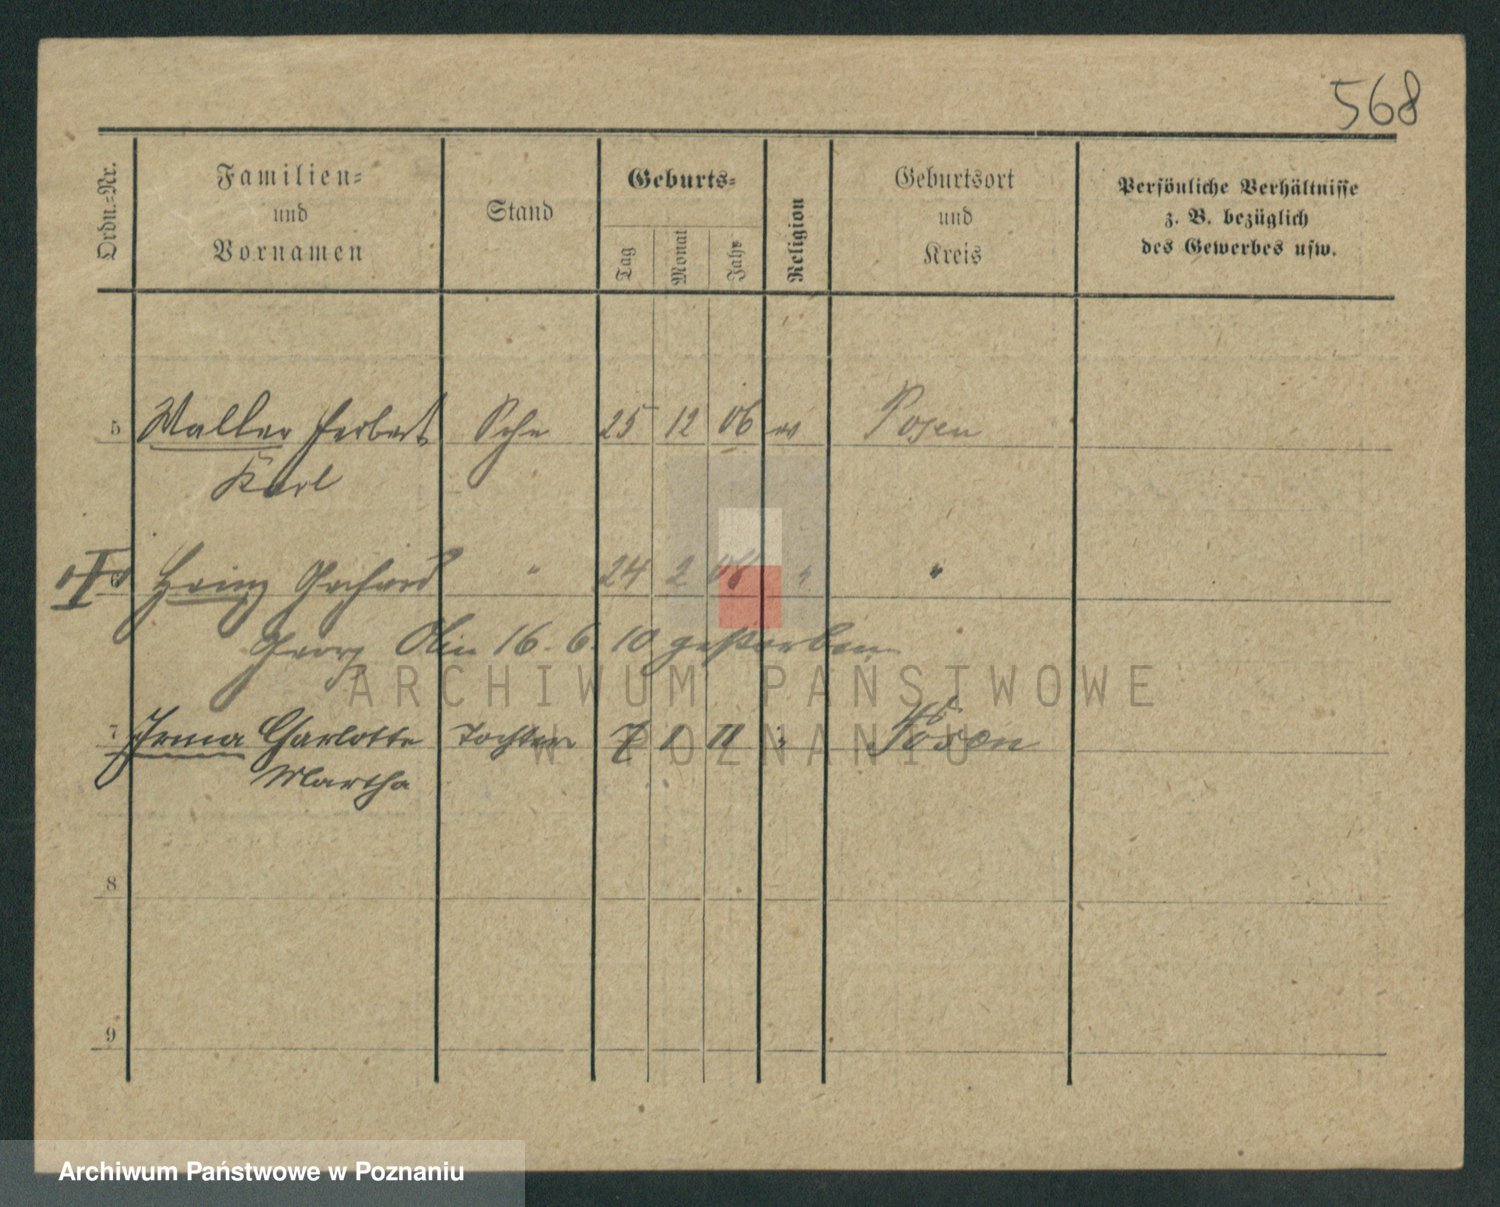 568
Ordn.-Nr.
Familien-
und
Vornamen
Stand
Geburts-
Tag
Monat
Jahr
Religion
Geburtsort
und
Kreis
Persönliche Verhältnisse
z. B. bezüglich
des Gewerbes usw.
5 Walter Herbert 25 12 06 Posen
Karl
6 Heinz Gerhard " 24 2 08 " "
Georg 16. 6. 10 gestorben
7 Irma Charlotte Tochter 7 1 11 " Posen
Martha
8
9
ARCHIWUM PAŃSTWOWE
W POZNANIU
Archiwum Państwowe w Poznaniu